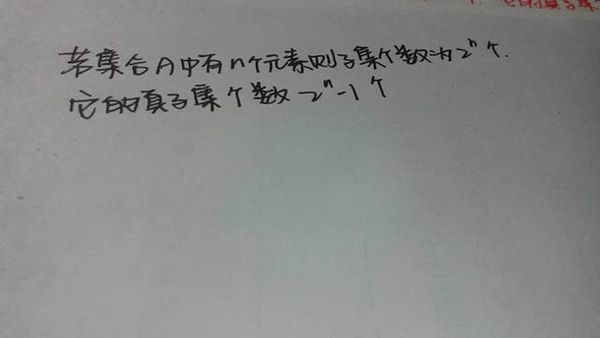 它的真子集
若集合A中有n个元素则子集个数为2ⁿ个.
它的真子集个数2ⁿ-1个